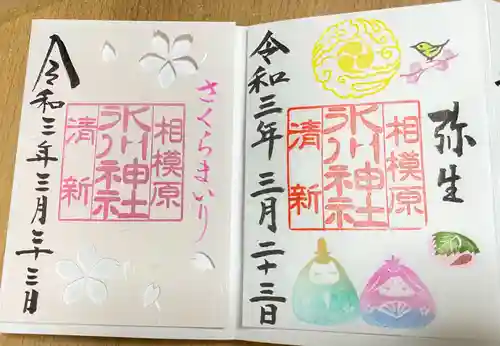 弥生
相模原
氷川神社
清新
令和三年三月二十三日
さくらまいり
相模原
氷川神社
清新
令和三年三月二十三日